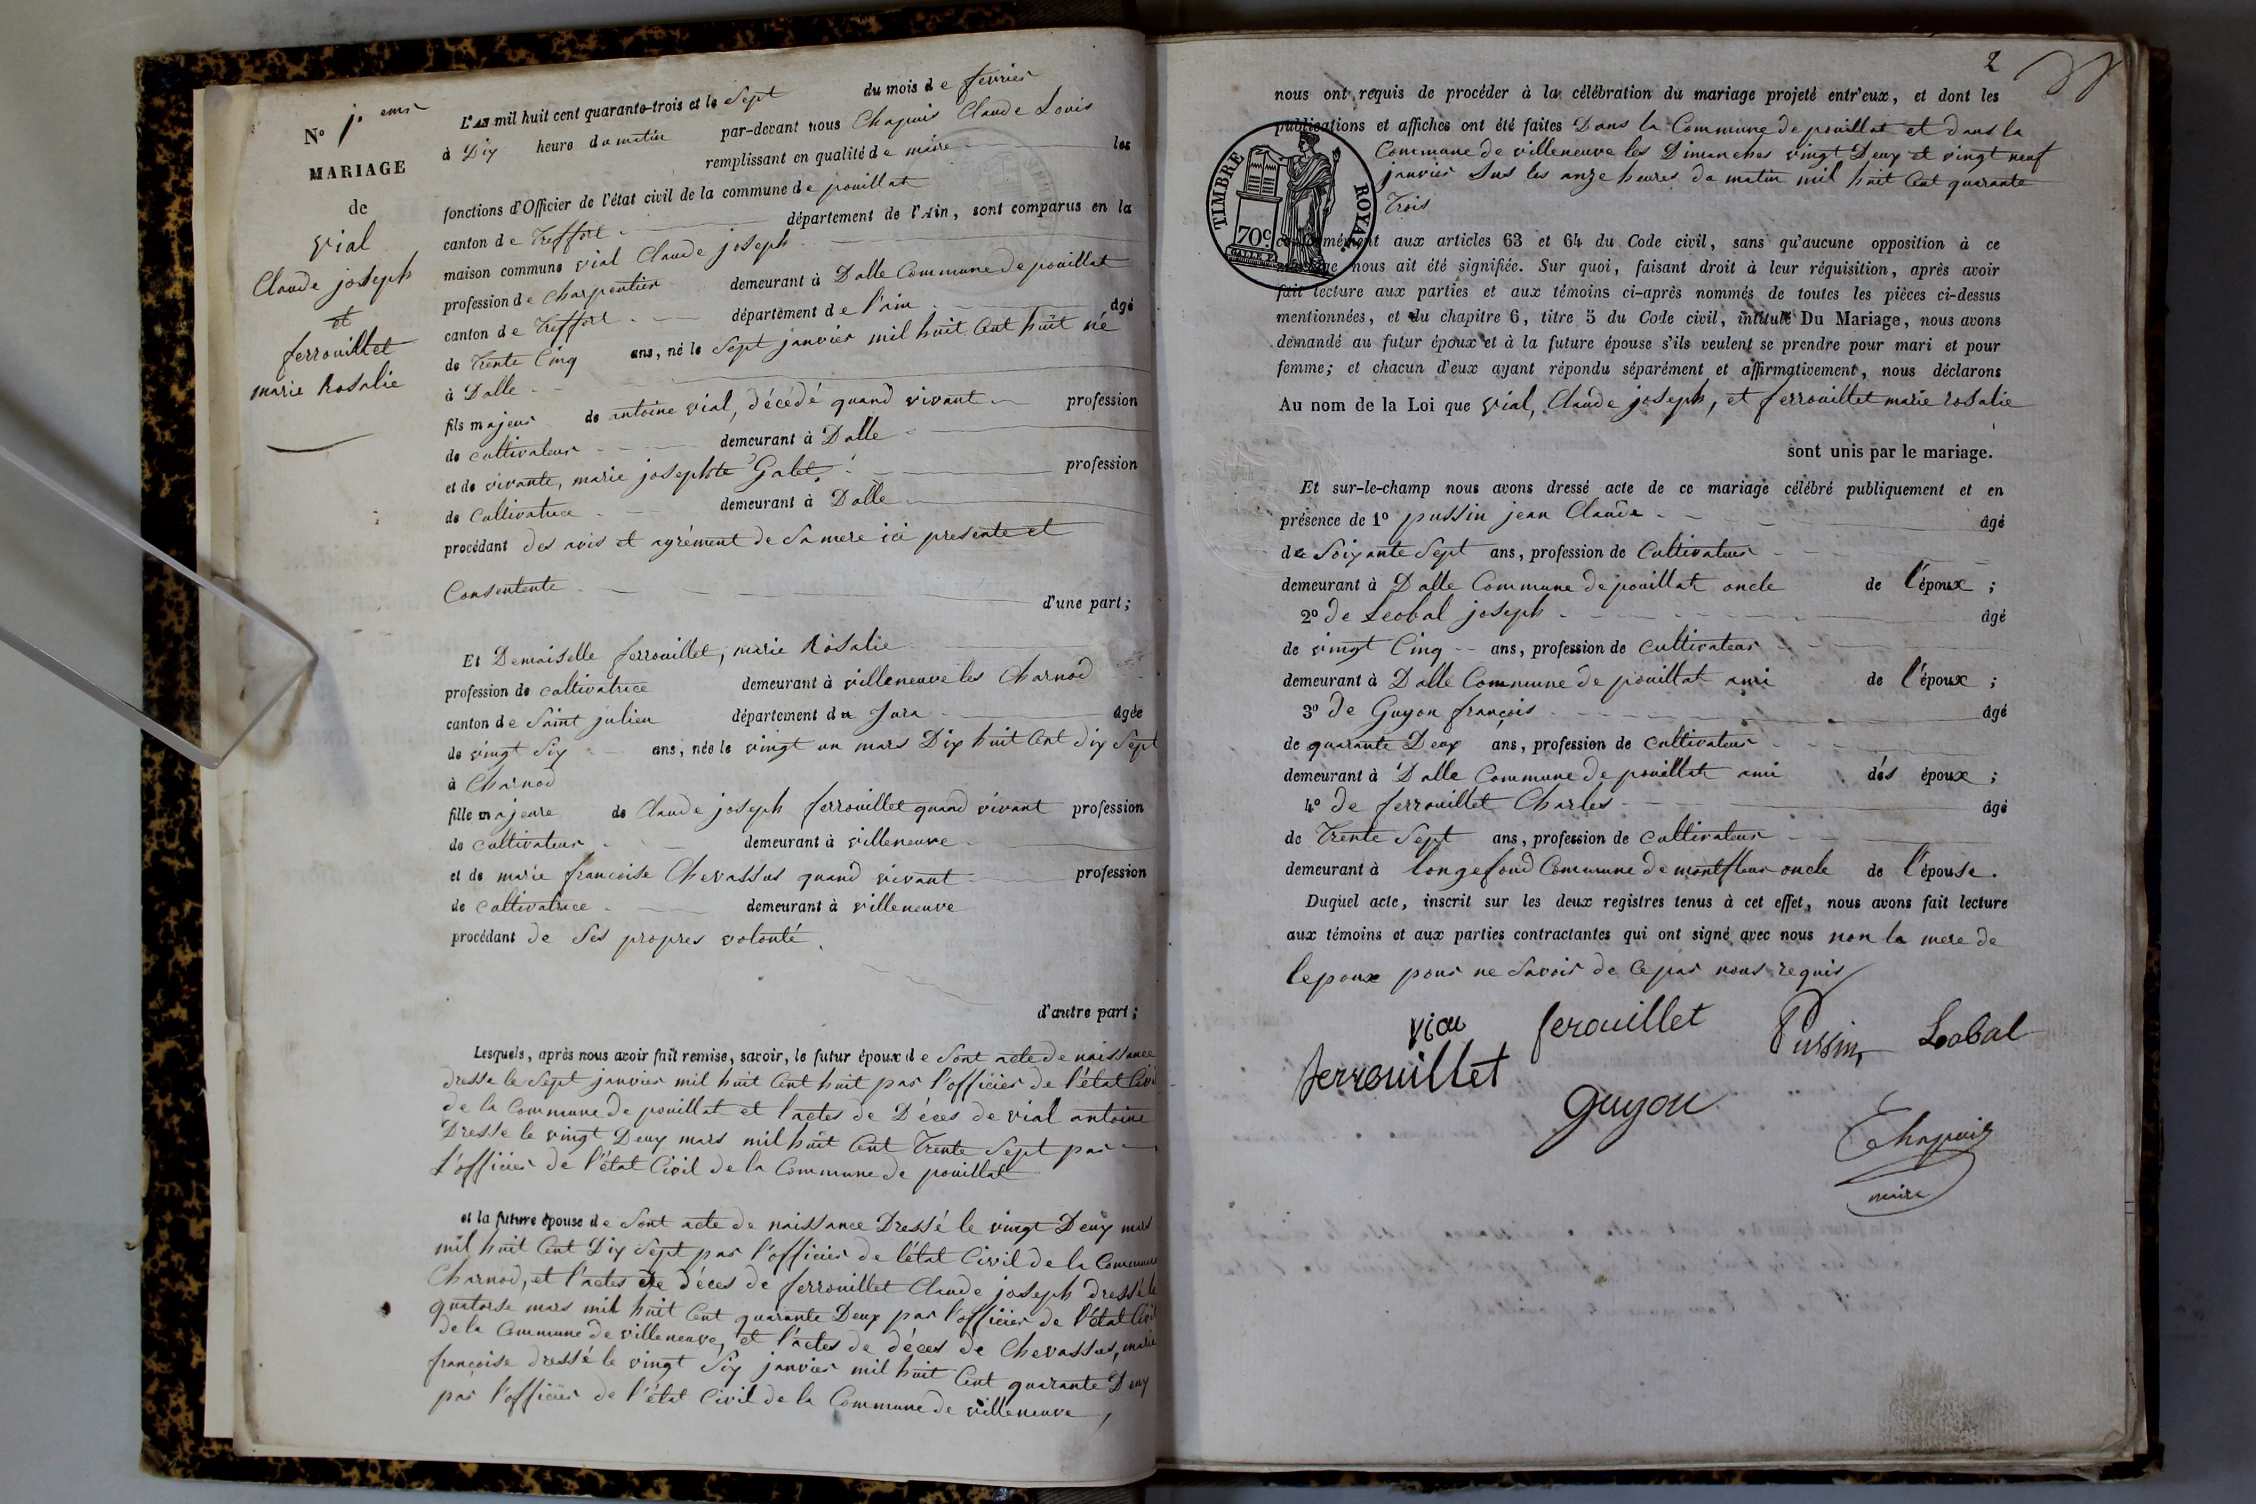 N° 1er
MARIAGE
de
vial
Claude joseph
et
ferrouillet
marie Rosalie
L'an mil huit cent quarante-trois et le Sept du mois de fevrier
à Dix heure du matin par-devant nous Chapuis Claude Louis
remplissant en qualité de maire les
fonctions d'Officier de l'état civil de la commune de pouillat
canton de Treffort département de l'Ain, sont comparus en la
maison commune vial Claude joseph
profession de charpentier demeurant à Dalle Commune de pouillat
canton de Treffort département de l'ain âgé
de Trente Cinq ans, né le Sept janvier mil huit Cent huit né
à Dalle
fils majeur de antoine vial, décédé quand vivant profession
de cultivateur demeurant à Dalle
et de vivante, marie josephte Galet profession
de Cultivatrice demeurant à Dalle
procédant des avis et agrément de Sa mere ici presente et
Consentente
d'une part;
Et Demaiselle ferrouillet, marie Rosalie
profession de caltivatrice demeurant à villeneuve les Charnod
canton de Saint julien département du Jura âgée
de vingt Six ans, née le vingt un mars Dix huit Cent dix Sept
à Charnod
fille majeure de Claude joseph ferrouillet quand vivant profession
de cultivateur demeurant à villeneuve
et de marie francoise Chevassus quand vivant profession
de caltivatrice demeurant à villeneuve
procédant de Ses propres volonté
d'autre part;
Lesquels, après nous avoir fait remise, savoir, le futur époux de Sont acte de naissance
dresse le Sept janvier mil huit Cent huit par l'officier de l'état Civil
de la Commune de pouillat et l'actes de Déces de vial antoine
Dresse le vingt Deux mars mil huit Cent Trente Sept par
L'officier de l'état Civil de la Commune de pouillat
et la future épouse de Sont acte de naissance Dressé le vingt Deux mars
mil huit Cent Dix Sept par l'officier de l'état Civil de la Commune
Charnod, et l'actes de déces de ferrouillet Claude joseph dressé le
quatorse mars mil huit Cent quarante Deux par l'officier de l'état Civil
de la Commune de villeneuve, et l'actes de déces de Chevassus, marie
françoise dressé le vingt Six janvier mil huit Cent quarante Deux
par l'officier de l'état Civil de la Commune de villeneuve,
2
nous ont requis de procéder à la célébration du mariage projeté entr'eux, et dont les
publications et affiches ont été faites Dans la Commune de pouillat et dans la
Commune de villeneuve les Dimanches vingt Deux et vingt neuf
janvier Sus les onze heures du matin mil huit Cent quarante
Trois
TIMBRE ROYAL
70c
conformément aux articles 63 et 64 du Code civil, sans qu'aucune opposition à ce
mariage nous ait été signifiée. Sur quoi, faisant droit à leur réquisition, après avoir
fait lecture aux parties et aux témoins ci-après nommés de toutes les pièces ci-dessus
mentionnées, et du chapitre 6, titre 5 du Code civil, intitulé Du Mariage, nous avons
demandé au futur époux et à la future épouse s'ils veulent se prendre pour mari et pour
femme; et chacun d'eux ayant répondu séparément et affirmativement, nous déclarons
Au nom de la Loi que vial, Claude joseph, et ferrouillet marie rosalie
sont unis par le mariage.
Et sur-le-champ nous avons dressé acte de ce mariage célébré publiquement et en
présence de 1° pussin jean Claude âgé
de Soixante Sept ans, profession de Cultivateur
demeurant à Dalle Commune de pouillat oncle de l'époux ;
2° de Leobal joseph âgé
de vingt Cinq ans, profession de cultivateur
demeurant à Dalle Commune de pouillat ami de l'époux ;
3° de Guyon françois âgé
de quarante Deux ans, profession de cultivateur
demeurant à Dalle Commune de pouillat ami des époux ;
4° de ferrouillet Charles âgé
de Trente Sept ans, profession de cultivateur
demeurant à longefond Commune de montfleur oncle de l'épouse.
Duquel acte, inscrit sur les deux registres tenus à cet effet, nous avons fait lecture
aux témoins et aux parties contractantes qui ont signé avec nous non la mere de
lepoux pour ne Savoir de Ce par nous requis
viou ferouillet Pussin Lobal
ferrouillet
guyon
Chapuis
maire